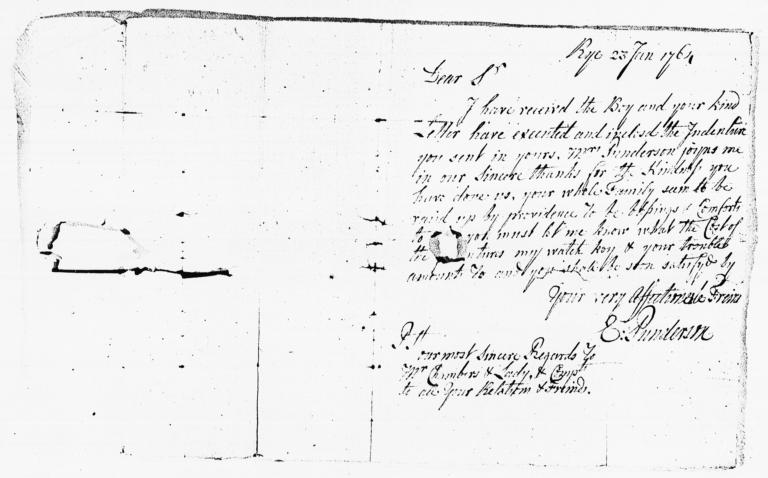 Rye 23 Jan 1764
Dear Sr
I have received the Boy and your kind
Letter have executed and inclosd the Indenture
you sent in yours, Mrs Punderson joyns me
in our sincere thanks for the Kindness you
have done us, your whole Family seem to be
raisd up by providence to be blssings & Comforts
to you must let me know what the Cost of
the ntures my watch key & your trouble
amount to and you shall be soon satisfyd by
Your very Affectionate Freind
E: Punderson
P.S
our most sincere Regards To
Mr Chambers & Lady, & Compts
to all Your Relations & Freinds.